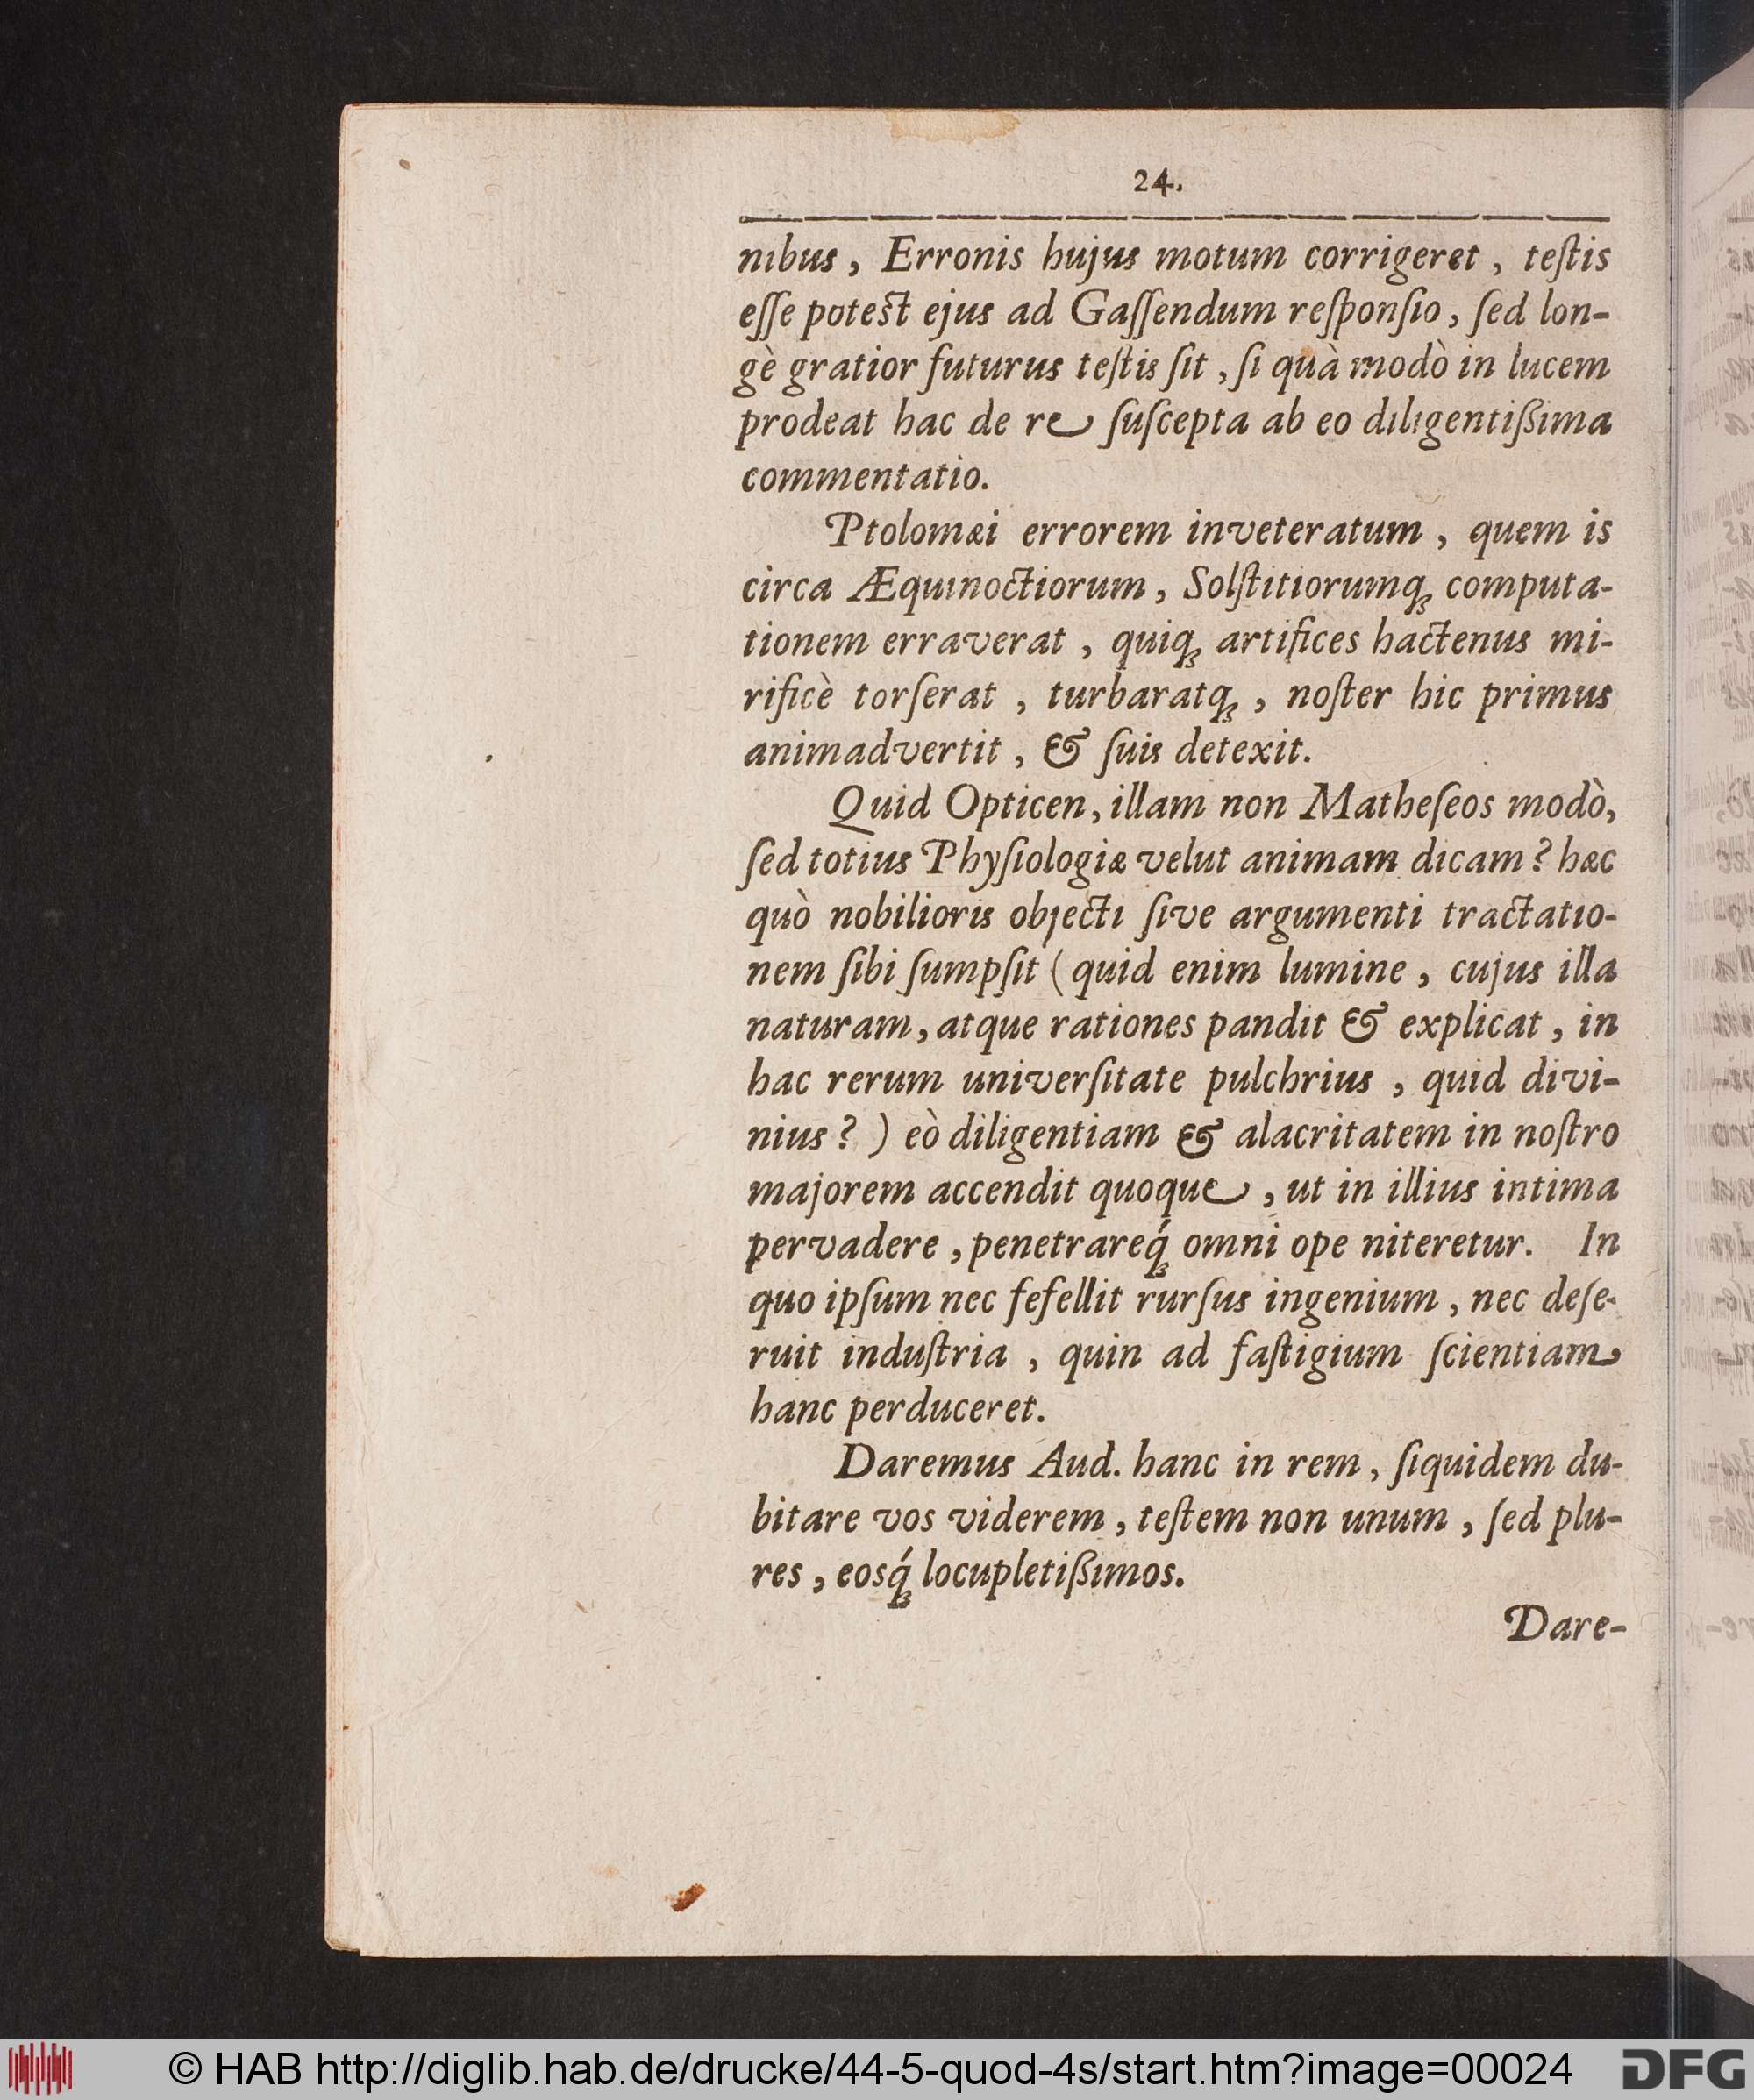 24.
nibus, Erronis hujus motum corrigeret, teſtis
eſſe poteſt ejus ad Gaſſendum reſponſio, ſed lon-
gè gratior futurus teſtis ſit, ſi quà modò in lucem
prodeat hac de re ſuſcepta ab eo diligentiſſima
commentatio.
Ptolomæi errorem inveteratum, quem is
circa Æquinoctiorum, Solſtitiorumq́ꝫ computa-
tionem erraverat, quiqꝫ artifices hactenus mi-
rificè torſerat, turbaratqꝫ, noſter hic primus
animadvertit, & ſuis detexit.
Quid Opticen, illam non Matheſeos modò,
ſed totius Phyſiologiæ velut animam dicam? hæc
quò nobilioris objecti ſive argumenti tractatio-
nem ſibi ſumpſit (quid enim lumine, cujus illa
naturam, atque rationes pandit & explicat, in
hac rerum univerſitate pulchrius, quid divi-
nius?) eò diligentiam & alacritatem in noſtro
majorem accendit quoque, ut in illius intima
pervadere, penetrareq́ꝫ omni ope niteretur. In
quo ipſum nec fefellit rurſus ingenium, nec deſe-
ruit induſtria, quin ad faſtigium ſcientiam
hanc perduceret.
Daremus Aud. hanc in rem, ſiquidem du-
bitare vos viderem, teſtem non unum, ſed plu-
res, eosq́ꝫ locupletißimos.
Dare-
© HAB http://diglib.hab.de/drucke/44-5-quod-4s/start.htm?image=00024
DFG